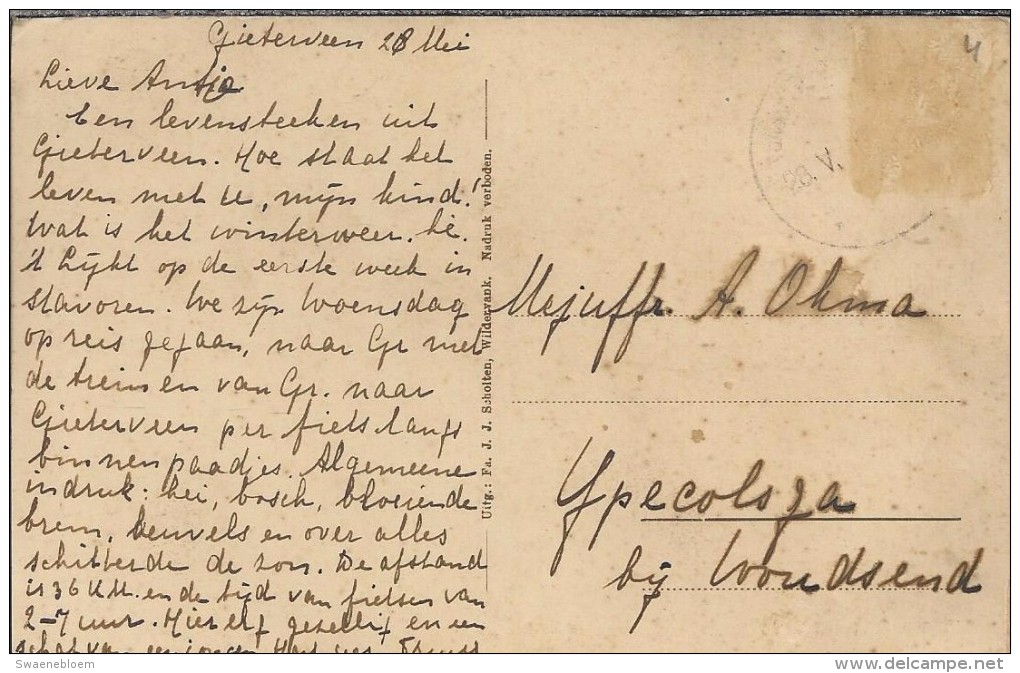 Gieterveen 28 Mei
Lieve Antje
Een levensteeken uit
Gieterveen. Hoe staat het
leven met U, mijn kind!
Wat is het winterweer. hè.
't Lijkt op de eerste week in
Stavoren. We zijn Woensdag
op reis gegaan, naar Gr met
de trein en van Gr. naar
Gieterveen per fiets langs
binnenpaadjes. Algemeene
indruk: hei, bosch, bloeiende
brem, heuvels en over alles
schitterde de zon. De afstand
is 36 K.M. en de tijd van fietsen van
2-7 uur. Hier erg gezellig en een
schat van een jongen
Uitg.: Fa. J. J. Scholten, Wildervank. Nadruk verboden.
28. V.
4
Mejuffr. A. Okma
Ypecolsga
bij Woudsend
Swaenebloem
delcampe.net